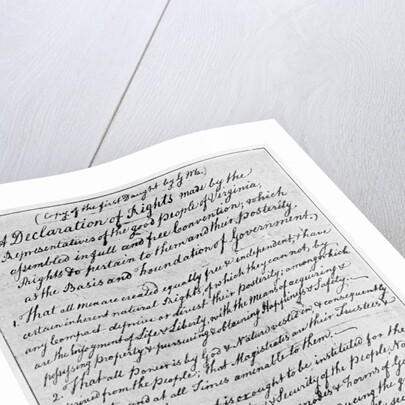 (Copy of the first Daught by G M.)
A Declaration of Rights made by the
Representatives of the good people of Virginia,
assembled in full and free Convention; which
Rights do pertain to them and their Posterity,
as the Basis and Foundation of Government.
1. That all men are created equally free & independent, & have
certain inherent natural Rights, of which they cannot, by
any Compact, deprive or divest their posterity; among which
are the Enjoyment of Life & Liberty, with the means of acquiring &
possessing Property, & pursueing & obtaining Happiness & Safety.
2. That all Power is by God & Nature vested in, & consequently
derived from the People; that Magistrates are their Trustees &
and at all Times aminable to them.
is, or ought to be instituted for the
& Security of the People, Na
Modes & Forms of